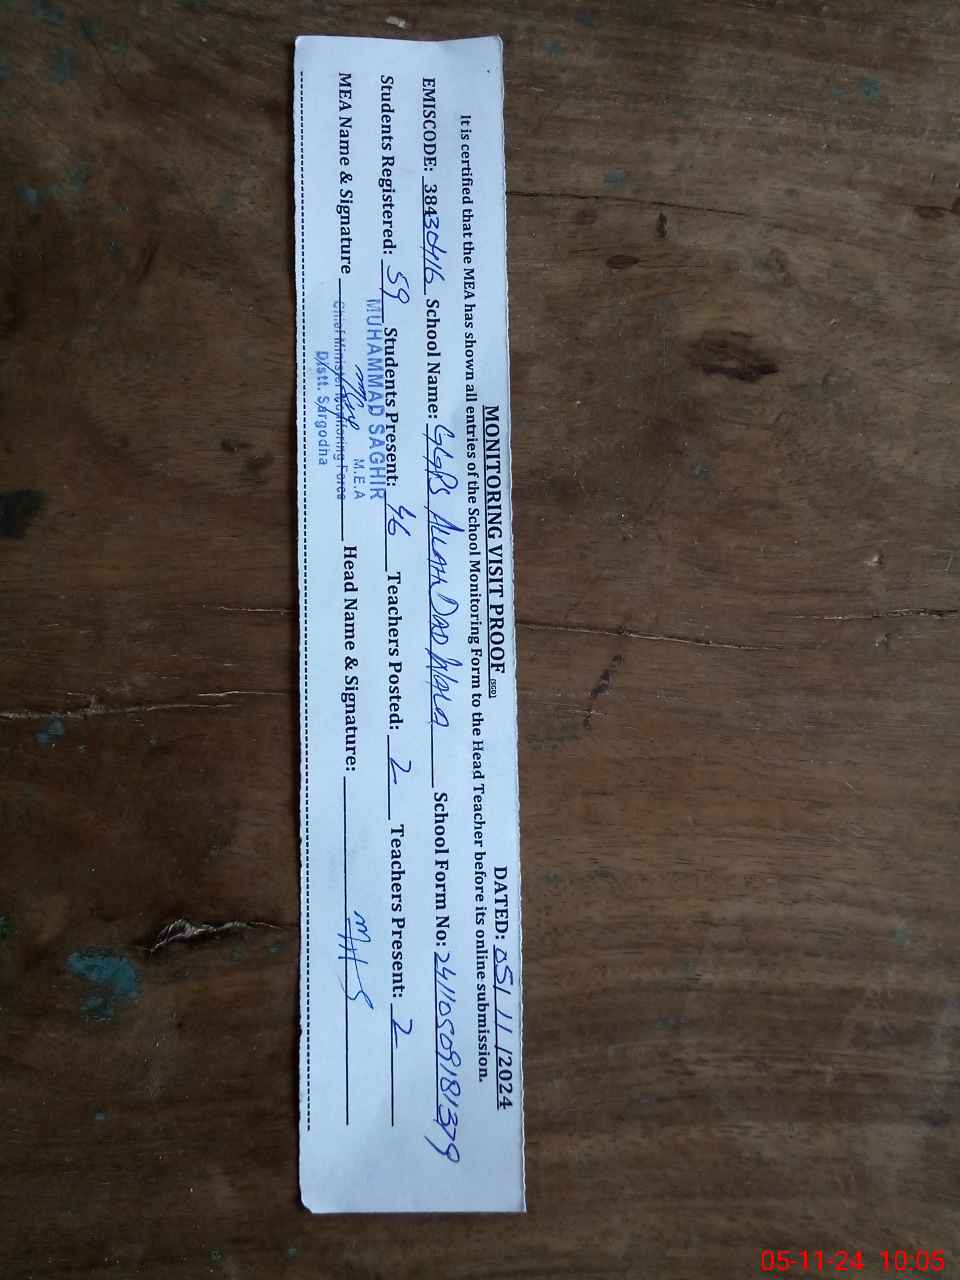 MONITORING VISIT PROOF (SGD) DATED: 05/11/2024
It is certified that the MEA has shown all entries of the School Monitoring Form to the Head Teacher before its online submission.
EMISCODE: 38430416 School Name: GGPS ALLAH DAD WALA School Form No: 24110509181379
Students Registered: 59 Students Present: 46 Teachers Posted: 2 Teachers Present: 2
MUHAMMAD SAGHIR
M.E.A
MEA Name & Signature Chief Minister Monitoring Force Head Name & Signature:
Distt. Sargodha
05-11-24 10:05